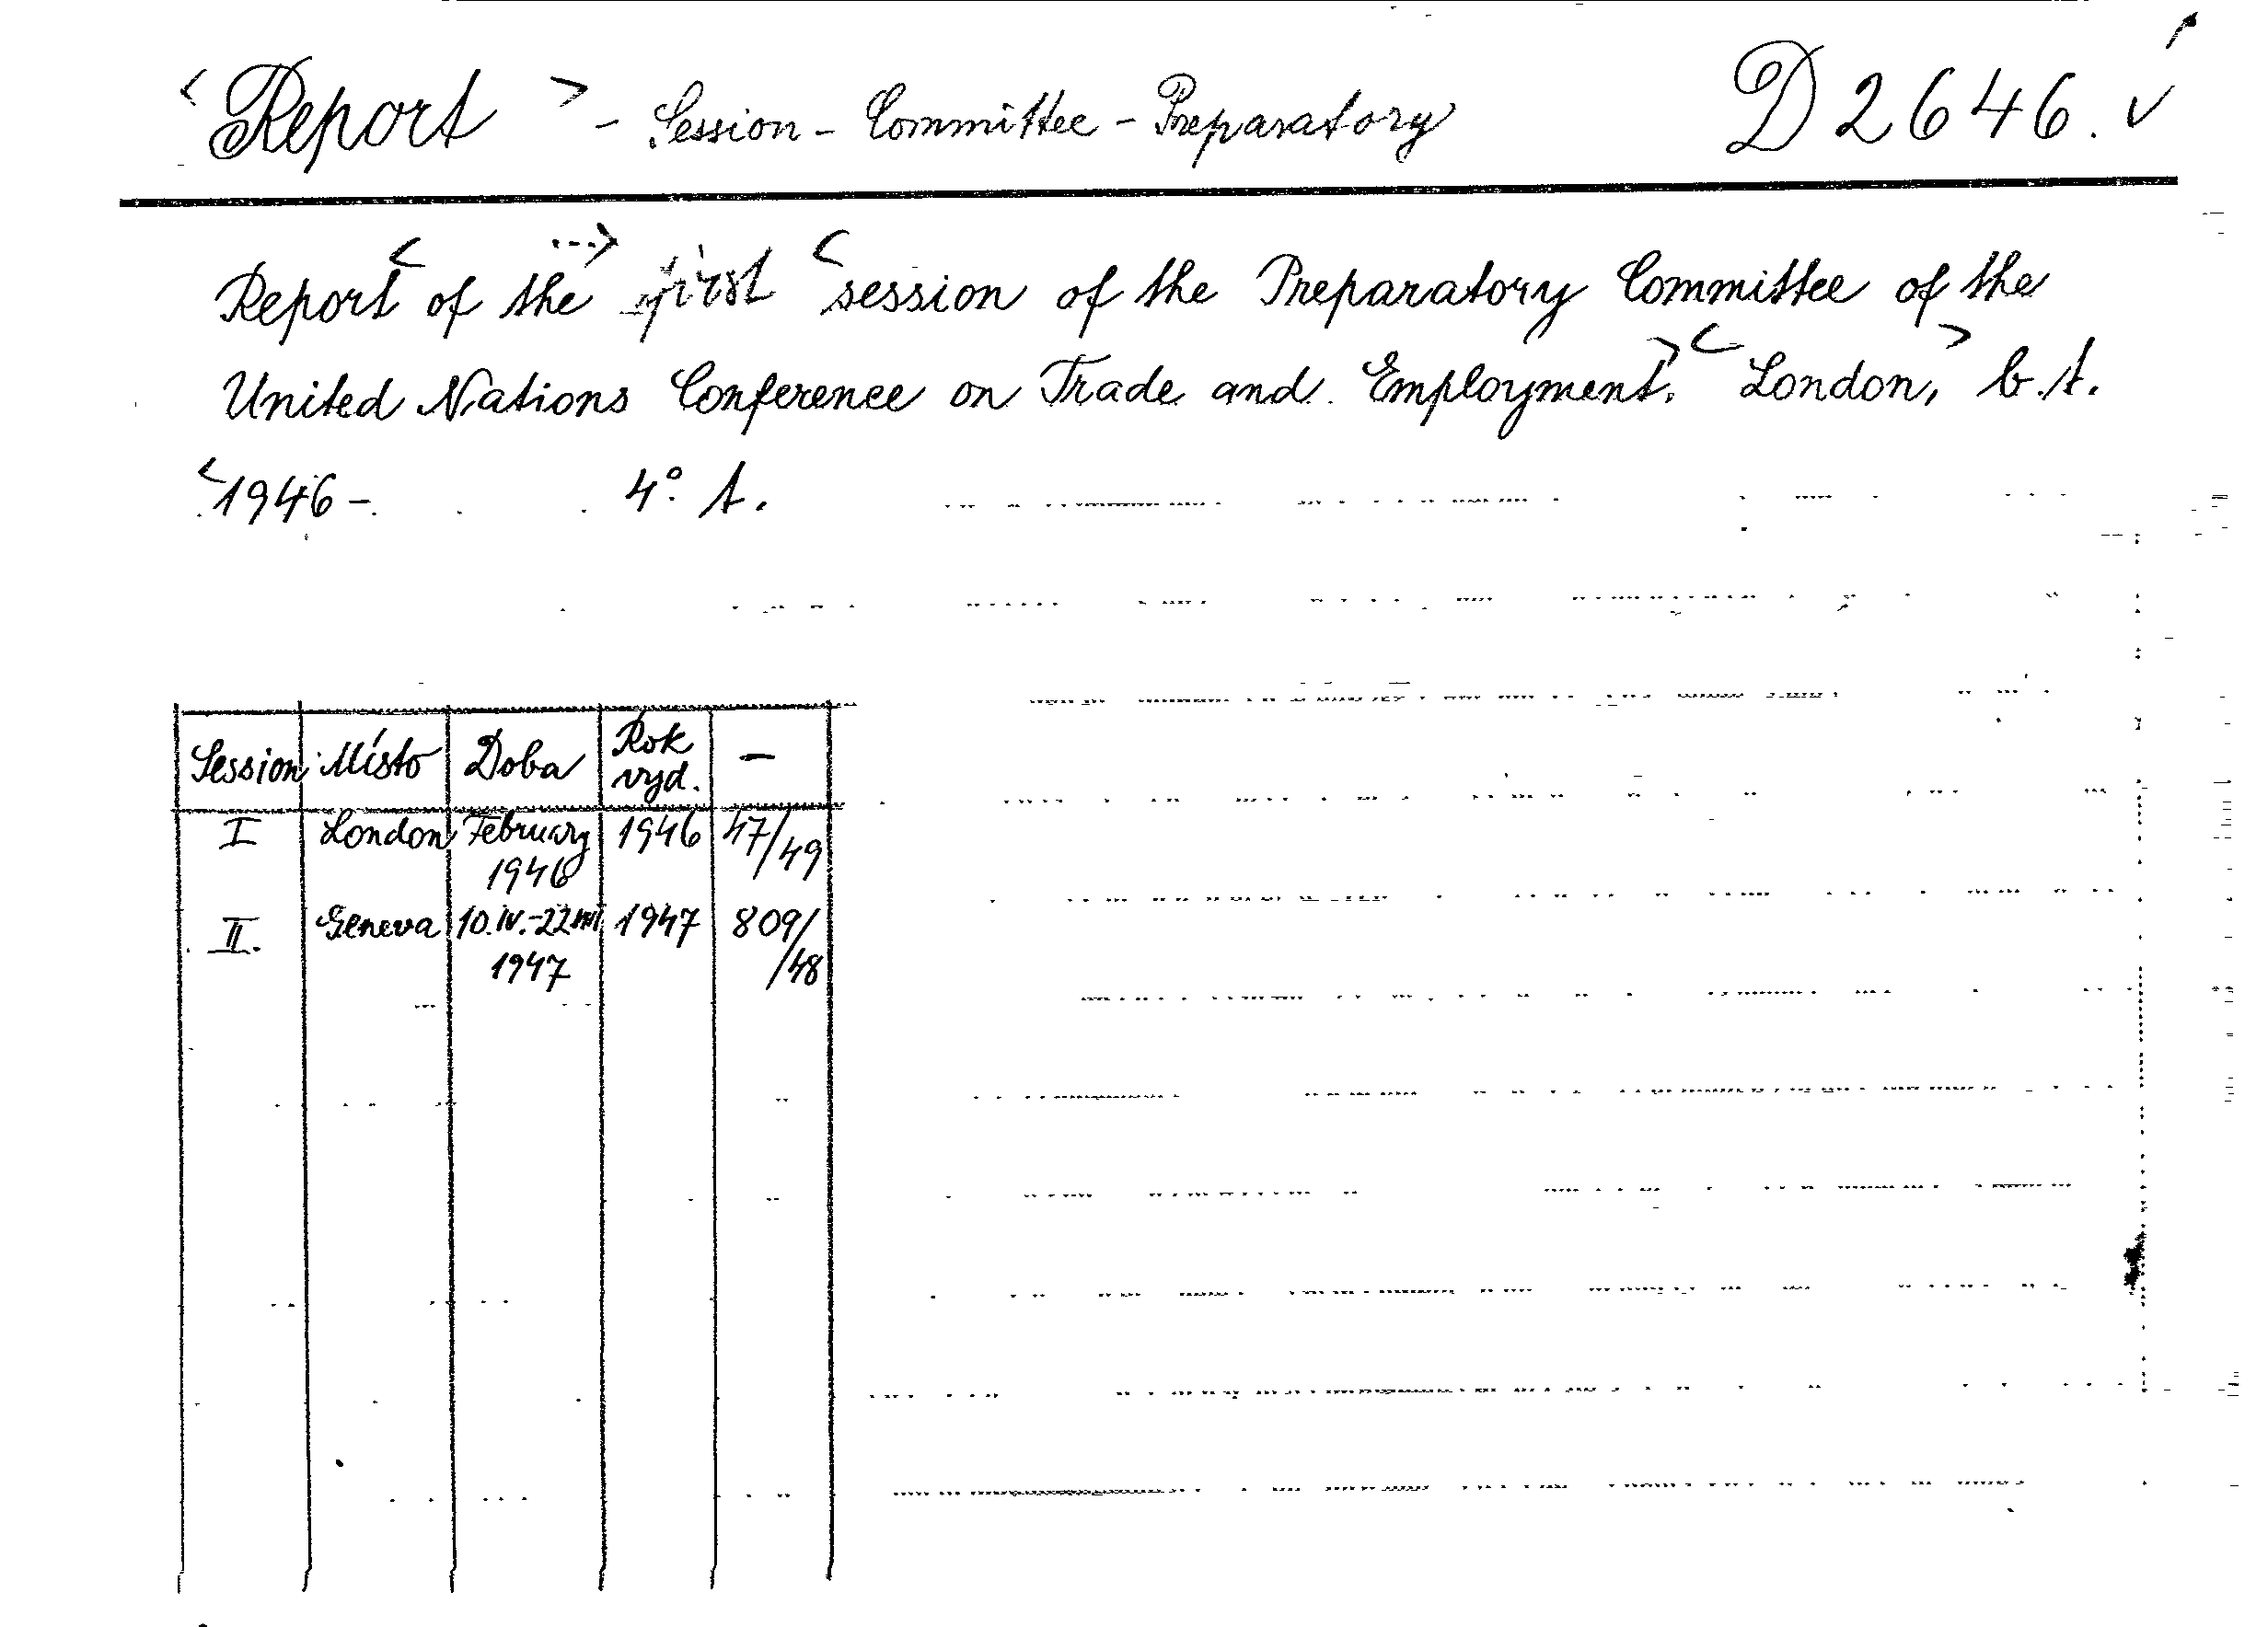 <Report> - Session - Committee - Preparatory D 2646. ✓
Report < of the ...> first < session of the Preparatory Committee of the
United Nations Conference on Trade and Employment.> < London,> b.t.
<1946 - 4° t.
Session Místo Doba Rok vyd. —
I London February 1946 1946 47/49
II. Geneva 10.IV.-22.VIII 1947 1947 809/48